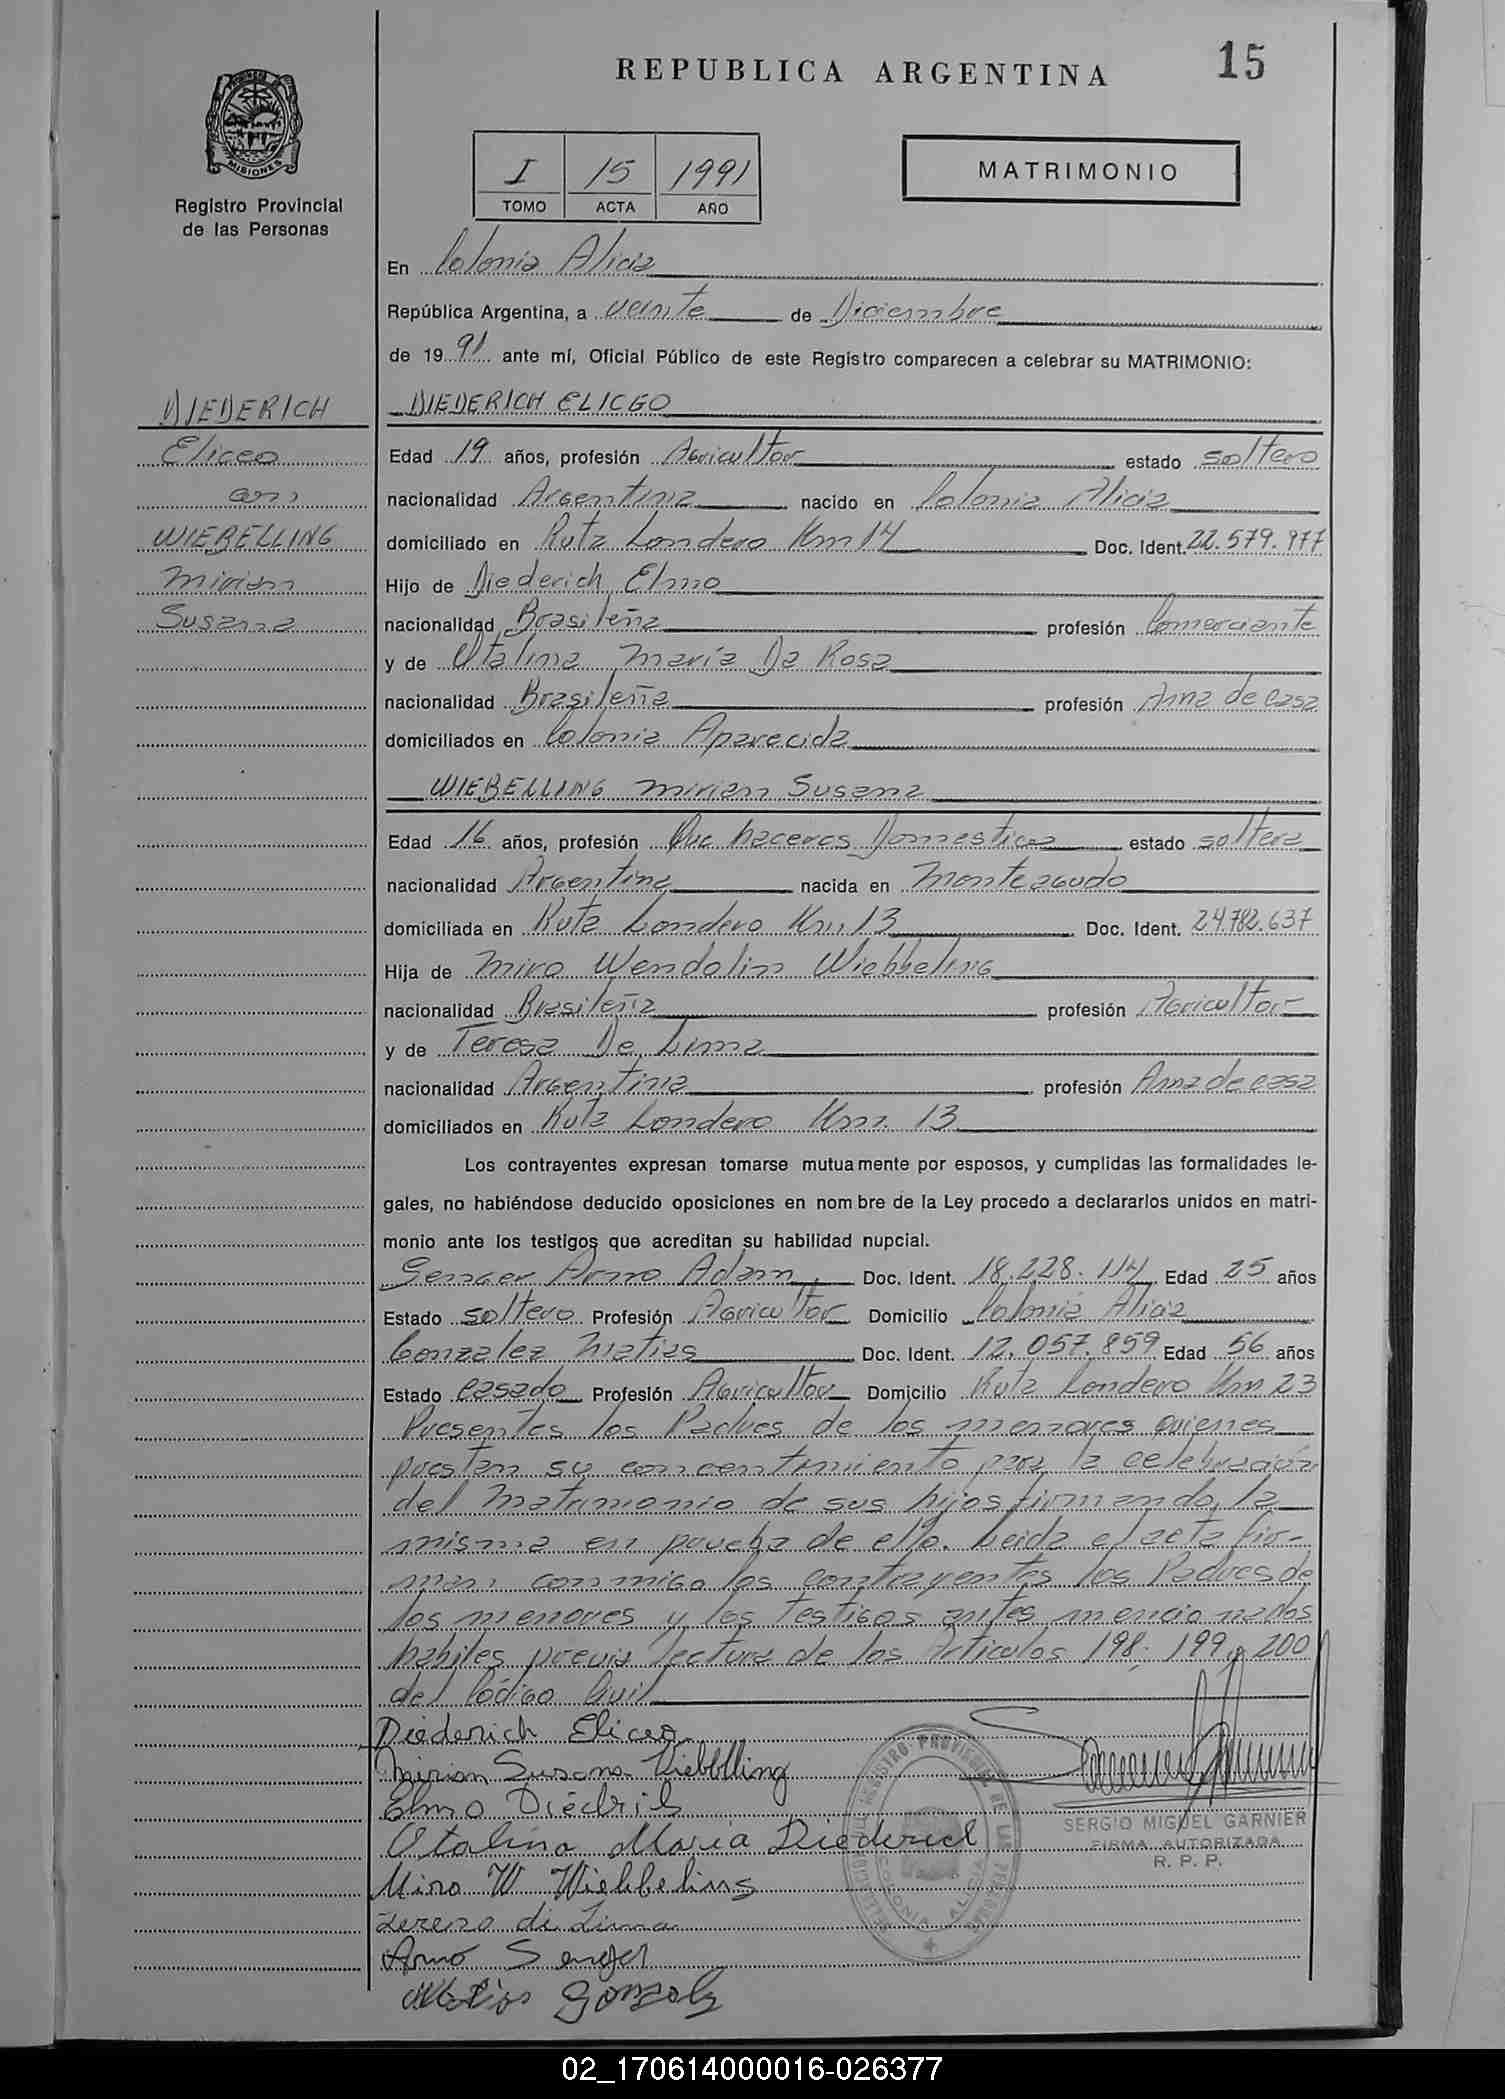 REPUBLICA ARGENTINA
15
MISIONES
Registro Provincial
de las Personas
I 15 1991
TOMO ACTA AÑO
MATRIMONIO
En Colonia Alicia
República Argentina, a veinte de Diciembre
de 19 91 ante mí, Oficial Público de este Registro comparecen a celebrar su MATRIMONIO:
DIEDERICH
Eliceo
con
WIEBELLING
Mirian
Susana
DIEDERICH ELICEO
Edad 19 años, profesión Agricultor estado soltero
nacionalidad Argentina nacido en Colonia Alicia
domiciliado en Ruta Londero Km 14 Doc. Ident. 22.579.977
Hijo de Diederich Elmo
nacionalidad Brasileña profesión Comerciante
y de Otalina Maria Da Rosa
nacionalidad Brasileña profesión Ama de casa
domiciliados en Colonia Aparecida
WIEBELLING Mirian Susana
Edad 16 años, profesión Que haceres Domesticos estado soltera
nacionalidad Argentina nacida en Monteagudo
domiciliada en Ruta Londero Km 13 Doc. Ident. 24.782.637
Hija de Miro Wendolin Wiebbeling
nacionalidad Brasileña profesión Agricultor
y de Teresa De Lima
nacionalidad Argentina profesión Ama de casa
domiciliados en Ruta Londero Km. 13
Los contrayentes expresan tomarse mutuamente por esposos, y cumplidas las formalidades le-
gales, no habiéndose deducido oposiciones en nombre de la Ley procedo a declararlos unidos en matri-
monio ante los testigos que acreditan su habilidad nupcial.
Senger Arno Adam Doc. Ident. 18.228.114 Edad 25 años
Estado soltero Profesión Agricultor Domicilio Colonia Alicia
Gonzalez Matias Doc. Ident. 12.057.859 Edad 56 años
Estado casado Profesión Agricultor Domicilio Ruta Londero Km 23
Presentes los Padres de los menores quienes
prestan su concentimiento para la celebración
del Matrimonio de sus hijos firmando la
misma en prueba de ello. Leida el acta fir-
man conmigo los contrayentes los Padres de
los menores y los testigos antes mencionados
habiles previa lectura de los Articulos 198, 199 y 200
del Código Civil
Diederich Eliceo
Mirian Susana Wiebblling
Elmo Diedrich
Otalina Maria Diederich
Miro W Wiebbeling
Tereza de Lima
Arno Senger
Matias Gonzalez
REGISTRO PROVINCIAL DE LAS PERSONAS
COLONIA ALICIA
SERGIO MIGUEL GARNIER
FIRMA AUTORIZADA
R. P. P.
02_170614000016-026377